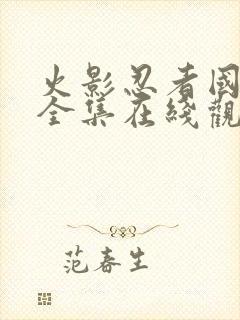 火影忍者國
全集在綫觀
范春生